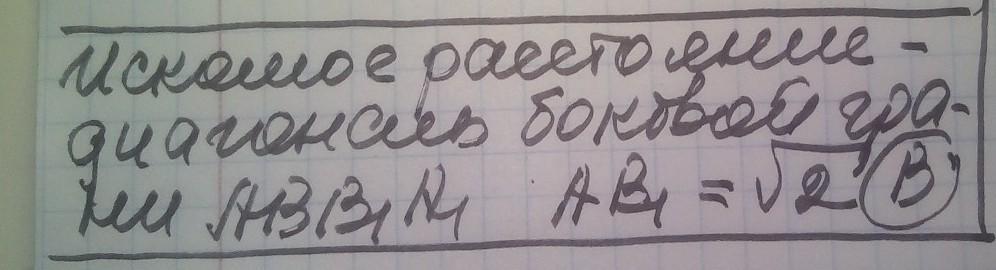 Искомое расстояние -
диагональ боковой гра-
ни ABB₁A₁ AB₁ = √2 В